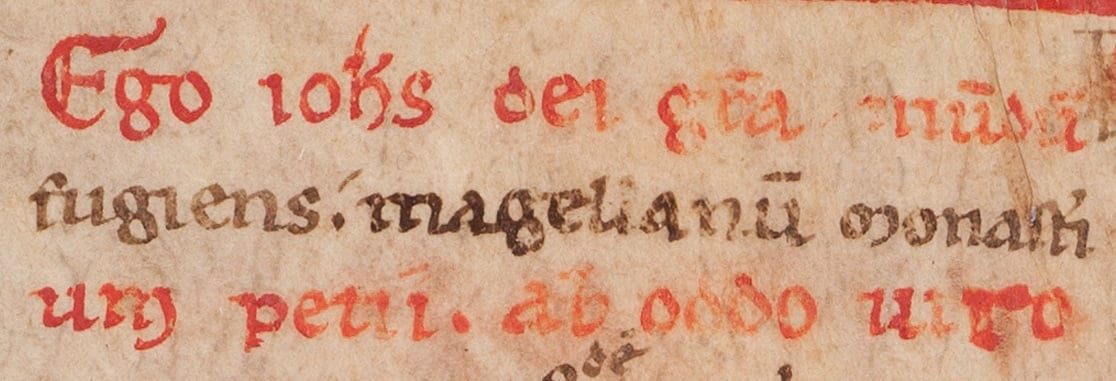 Ego ioħs dei gr̄a mūdū
fugiens. magelianū monasti
um petii. ab oddo uiro